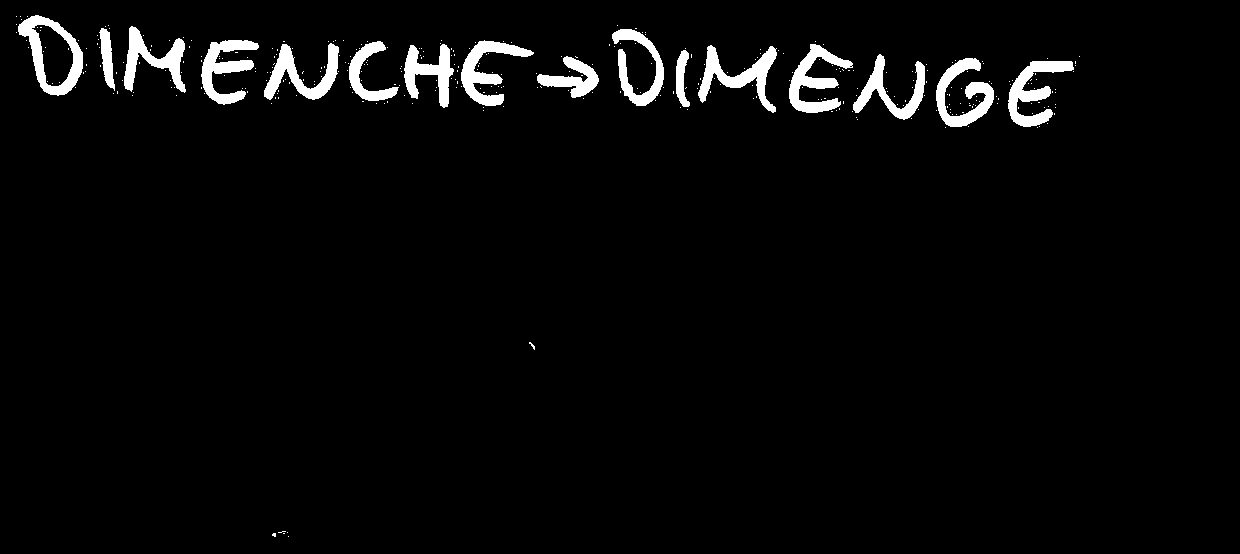 DIMENCHE → DIMENGE